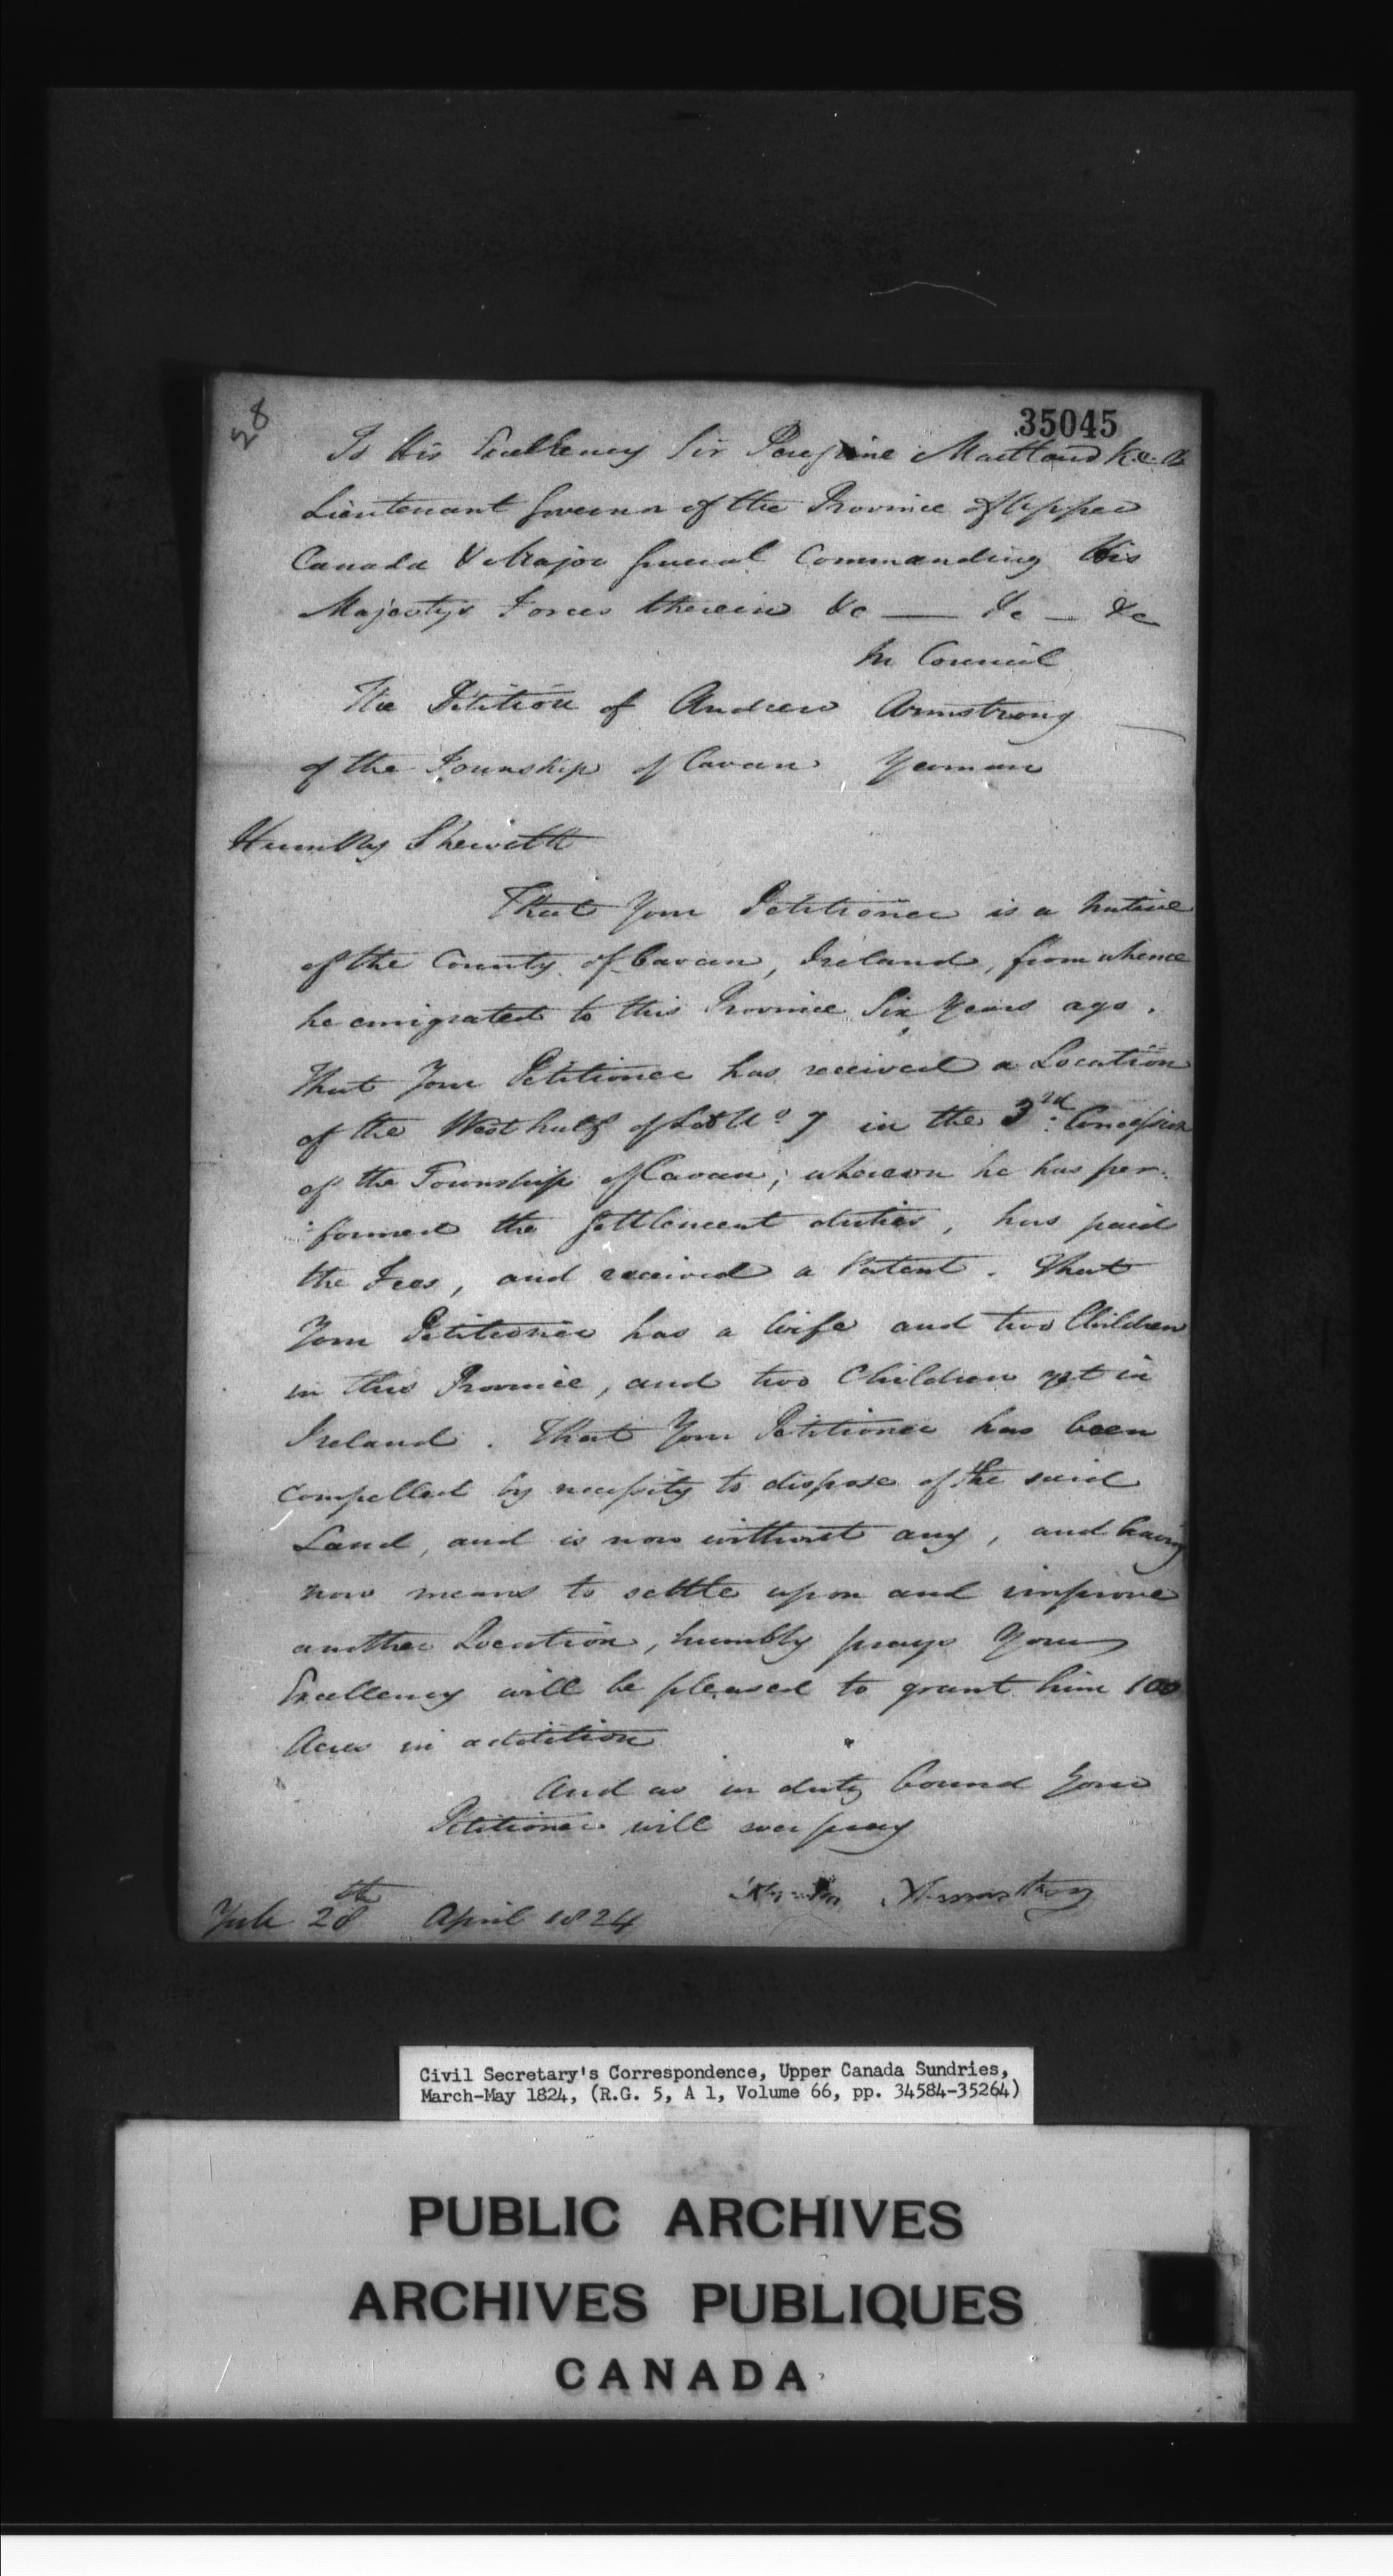 28
35045
To His Excellency Sir Peregrine Maitland K.C.B
Lieutenant Governor of the Province of Upper
Canada & Major General Commanding His
Majestys Forces therein &c — &c — &c
In Council
The Petition of Andrew Armstrong
of the Township of Cavan Yeoman
Humbly Sheweth
That Your Petitioner is a Native
of the County of Cavan, Ireland, from whence
he emigrated to this Province Six Years ago.
That Your Petitioner has received a Location
of the West half of Lot No 7 in the 3rd Concession
of the Township of Cavan, whereon he has per-
formed the Settlement duties, has paid
the Fees, and received a Patent. That
Your Petitioner has a Wife and two Children
in this Province, and two Children yet in
Ireland. That Your Petitioner has been
compelled by necessity to dispose of the said
Land, and is now without any, and having
now means to settle upon and improve
another Location, humbly prays Your
Excellency will be pleased to grant him 100
Acres in addition
And as in duty bound Your
Petitioner will ever pray
Armstrong
York 28th April 1824
Civil Secretary's Correspondence, Upper Canada Sundries,
March-May 1824, (R.G. 5, A 1, Volume 66, pp. 34584-35264)
PUBLIC ARCHIVES
ARCHIVES PUBLIQUES
CANADA